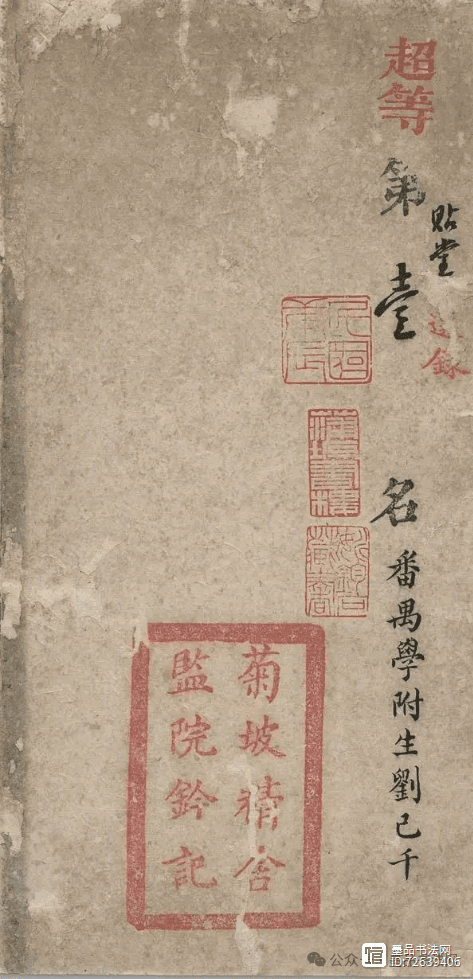 超等
第壹名
貼堂
錄
番禺學附生劉已千
菊坡精舍
監院鈐記
墨品书法网
ID:72639406
公众